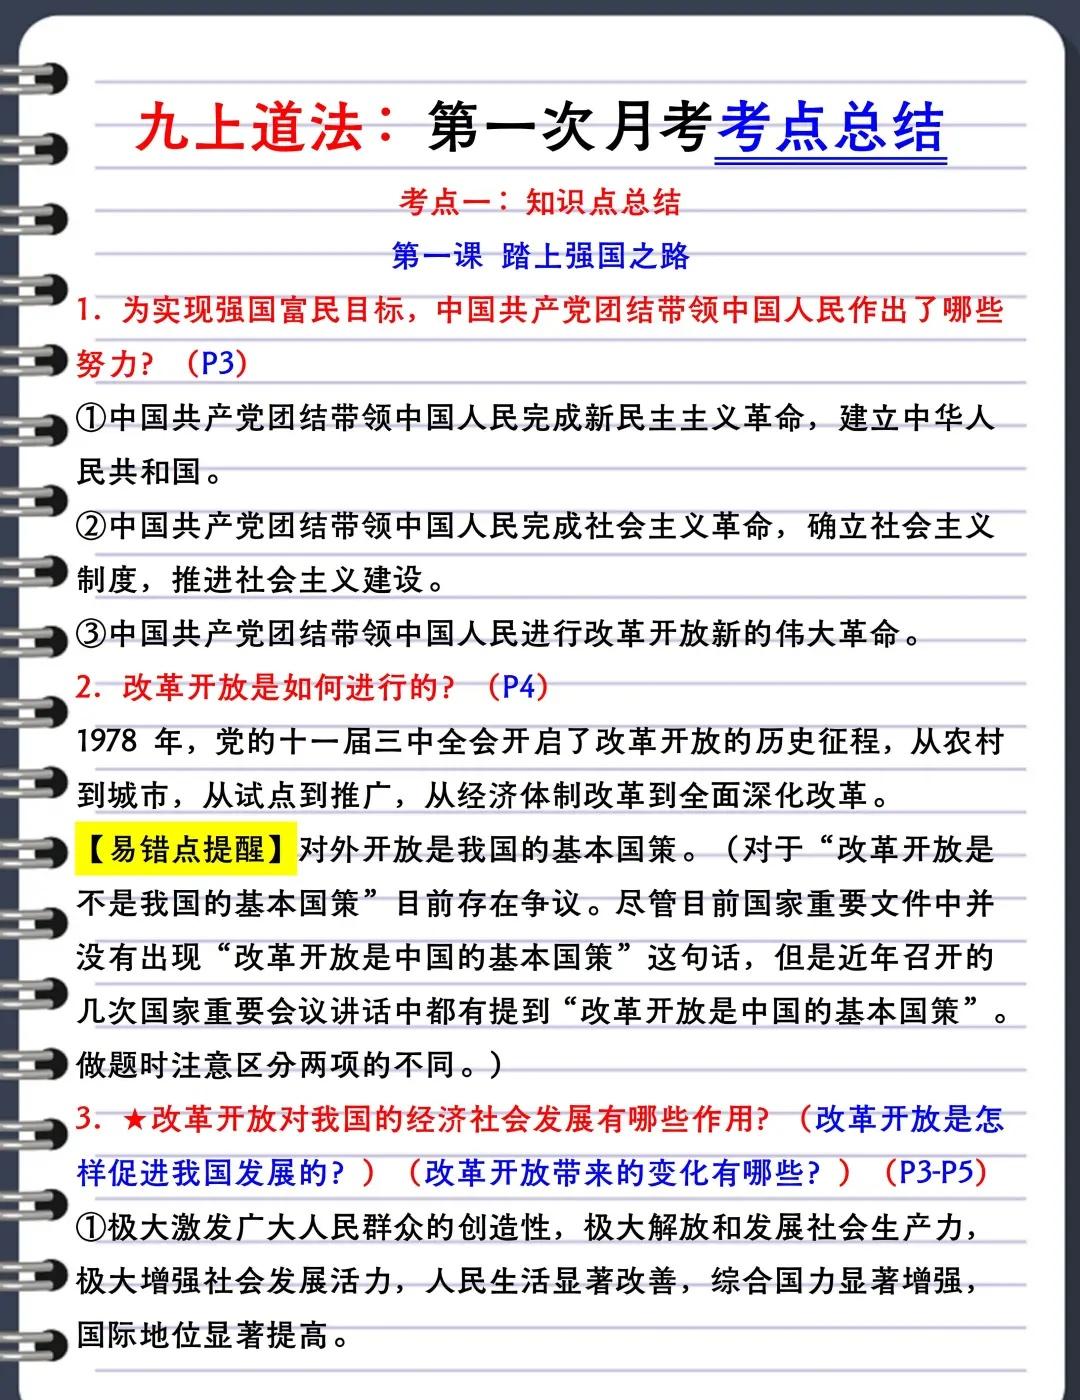 九上道法：第一次月考考点总结
考点一：知识点总结
第一课 踏上强国之路
1. 为实现强国富民目标，中国共产党团结带领中国人民作出了哪些
努力？（P3）
①中国共产党团结带领中国人民完成新民主主义革命，建立中华人
民共和国。
②中国共产党团结带领中国人民完成社会主义革命，确立社会主义
制度，推进社会主义建设。
③中国共产党团结带领中国人民进行改革开放新的伟大革命。
2. 改革开放是如何进行的？（P4）
1978 年，党的十一届三中全会开启了改革开放的历史征程，从农村
到城市，从试点到推广，从经济体制改革到全面深化改革。
【易错点提醒】对外开放是我国的基本国策。（对于“改革开放是
不是我国的基本国策”目前存在争议。尽管目前国家重要文件中并
没有出现“改革开放是中国的基本国策”这句话，但是近年召开的
几次国家重要会议讲话中都有提到“改革开放是中国的基本国策”。
做题时注意区分两项的不同。）
3. ★改革开放对我国的经济社会发展有哪些作用？（改革开放是怎
样促进我国发展的？）（改革开放带来的变化有哪些？）（P3-P5）
①极大激发广大人民群众的创造性，极大解放和发展社会生产力，
极大增强社会发展活力，人民生活显著改善，综合国力显著增强，
国际地位显著提高。